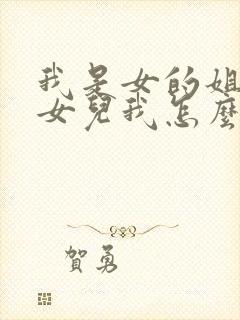 我是女的姐
女兒我怎麼
賀勇